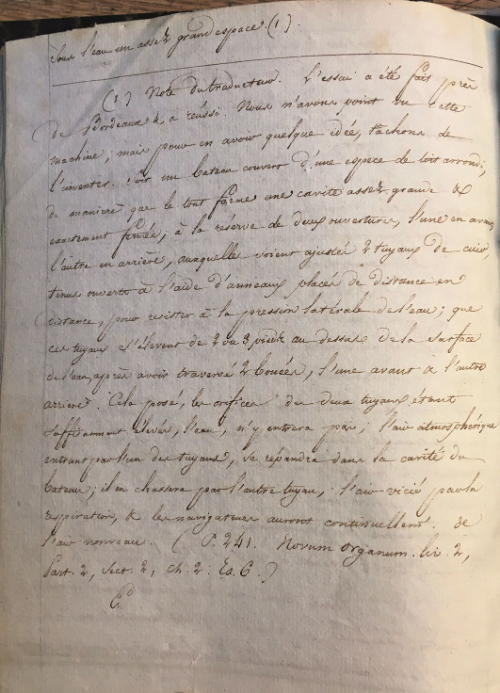 sous l'eau un assez grand espace (1).
(1) Note du traducteur. L'essai a été fait près
de Bordeaux & a réussi. Nous n'avons point vu cette
machine, mais pour en avoir quelque idée, tâchons de
l'inventer. Soit un bateau couvert d'une espece de toit arrondi,
de maniere que le tout forme une cavité assez grande &
exactement fermée, à la réserve de deux ouvertures, l'une en avant
l'autre en arriere, auxquelles soient ajustés 2 tuyaux de cuir
tenus ouverts à l'aide d'anneaux placés de distance en
distance, pour résister à la pression latérale de l'eau; que
ces tuyaux s'élevent de 2 ou 3 pieds au dessus de la surface
de l'eau, après avoir traversé 2 bouées, l'une avant & l'autre
arriere. Cela posé, les orifices des deux tuyaux étant
suffisamment élevés, l'eau, n'y entrera pas; l'air atmosphérique
entrant par l'un des tuyaux, se répandra dans la cavité du
bateau; il en chassera par l'autre tuyau, l'air vicié par la
respiration, & les navigateurs auront continuellemt. de
l'air nouveau. (P. 241. Novum Organum. liv. 2,
Part. 2, Sect. 2, ch. 2. Ex. 6.)